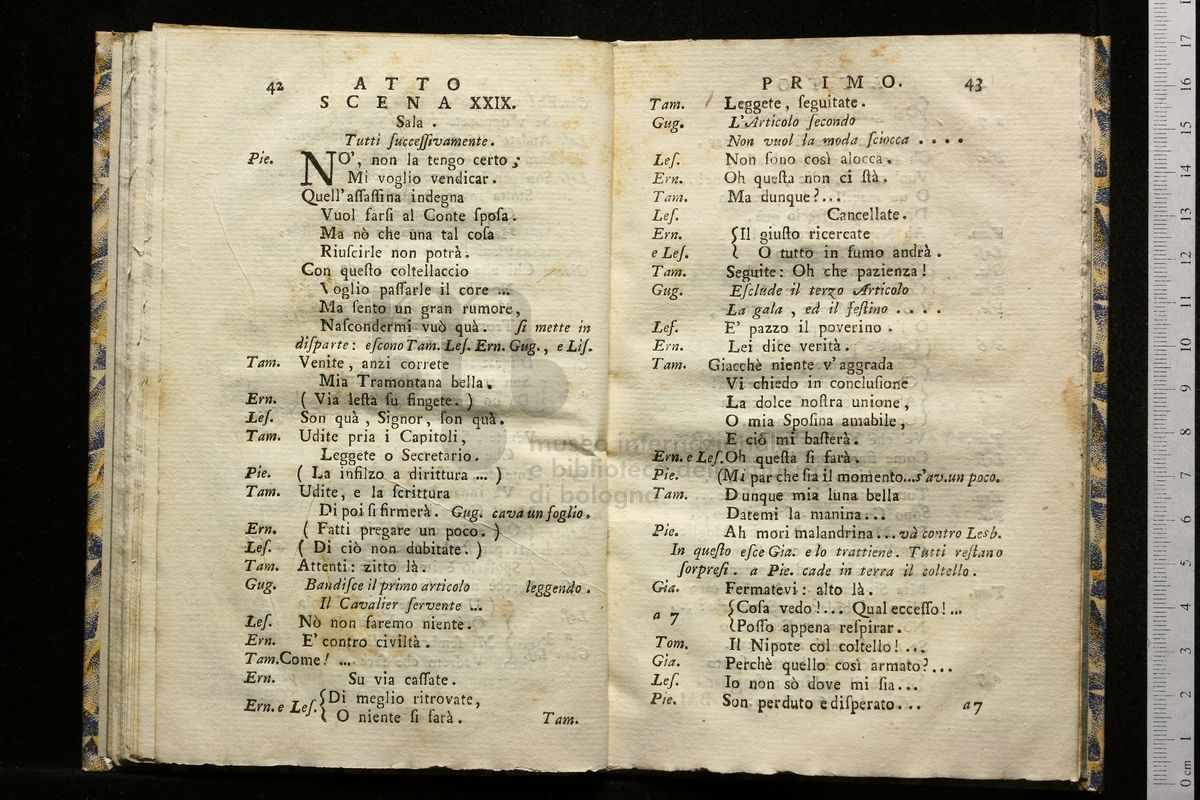 42 ATTO
SCENA XXIX.
Sala .
Tutti ſucceſſivamente.
Pie. NO', non la tengo certo ;
Mi voglio vendicar.
Quell'aſſaſſina indegna
Vuol farſi al Conte ſpoſa.
Ma nò che una tal coſa
Riuſcirle non potrà.
Con queſto coltellaccio
Voglio paſſarle il core ...
Ma ſento un gran rumore,
Naſcondermi vuò quà. ſi mette in
diſparte: eſcono Tam. Leſ. Ern. Gug., e Liſ.
Tam. Venite, anzi correte
Mia Tramontana bella.
Ern. ( Via leſta ſu fingete. )
Leſ. Son quà , Signor, ſon quà.
Tam. Udite pria i Capitoli,
Leggete o Secretario.
Pie. ( La infilzo a dirittura ... )
Tam. Udite, e la ſcrittura
Di poi ſi firmerà. Gug. cava un foglio.
Ern. ( Fatti pregare un poco. )
Leſ. ( Di ciò non dubitate. )
Tam. Attenti: zitto là.
Gug. Bandiſce il primo articolo leggendo.
Il Cavalier ſervente ...
Leſ. Nò non faremo niente.
Ern. E' contro civiltà.
Tam. Come! ....
Ern. Su via caſſate.
Ern. e Leſ. {Di meglio ritrovate,
{ O niente ſi farà. Tam.
PRIMO. 43
Tam. Leggete, ſeguitate.
Gug. L'Articolo ſecondo
Non vuol la moda ſciocca ....
Leſ. Non ſono così alocca.
Ern. Oh queſta non ci ſtà.
Tam. Ma dunque?...
Leſ. Cancellate.
Ern. {Il giuſto ricercate
e Leſ. { O tutto in fumo andrà.
Tam. Seguite: Oh che pazienza!
Gug. Eſclude il terzo Articolo
La gala , ed il feſtino ....
Leſ. E' pazzo il poverino .
Ern. Lei dice verità.
Tam. Giacchè niente v'aggrada
Vi chiedo in concluſione
La dolce noſtra unione,
O mia Spoſina amabile,
E ciò mi baſterà.
Ern. e Leſ. Oh queſta ſi farà.
Pie. (Mi par che ſia il momento...s'av.un poco.
Tam. Dunque mia luna bella
Datemi la manina...
Pie. Ah mori malandrina... và contro Lesb.
In queſto eſce Gia. e lo trattiene. Tutti reſtano
ſorpreſi. a Pie. cade in terra il coltello.
Gia. Fermatevi: alto là.
a 7 {Coſa vedo!... Qual ecceſſo!...
{Poſſo appena reſpirar.
Tom. Il Nipote col coltello! ...
Gia. Perchè quello così armato?...
Leſ. Io non sò dove mi ſia...
Pie. Son perduto e diſperato... a 7
museo internazionale
e biblioteca della musica
di bologna